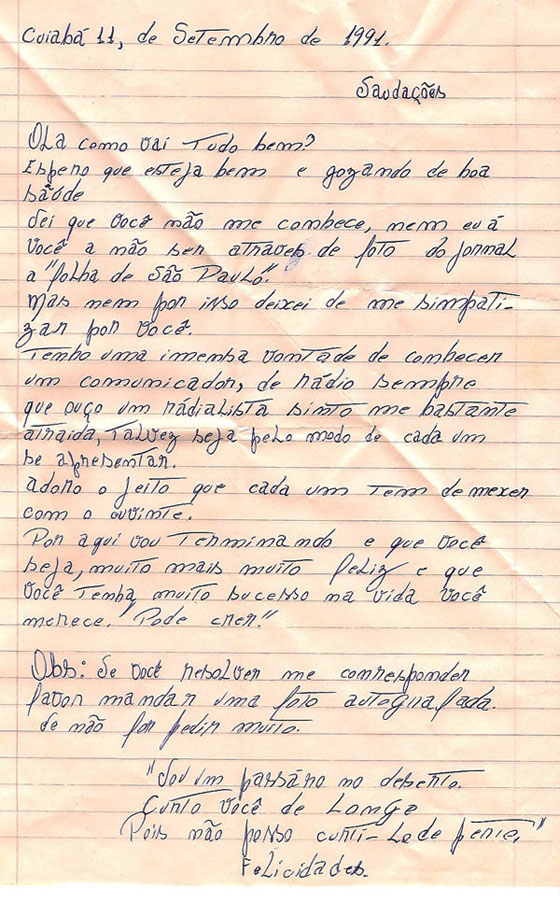 Cuiabá 11, de Setembro de 1991.
Saudações
Ola como vai Tudo bem?
Espero que esteja bem e gozando de boa
saúde
Sei que você não me conhece, nem eu á
você a não ser através de foto do jornal
a "folha de São Paulo".
Mas nem por isso deixei de me simpati-
zar por você.
Tenho uma imensa vontade de conhecer
um comunicador, de rádio sempre
que ouço um rádialista sinto me bastante
atraida, Talvez seja pelo modo de cada um
se apresentar.
adoro o jeito que cada um tem de mexer
com o ouvinte.
Por aqui vou Terminando e que você
seja, muito mais muito feliz e que
você Tenha muito sucesso na vida você
merece. "Pode crer!"
Obs: Se você resolver me corresponder
favor mandar uma foto autografada.
de não for pedir muito.
"Sou um passáro no deserto.
Curto você de Longe
Pois não posso curti-Lo de perto,"
Felicidades.